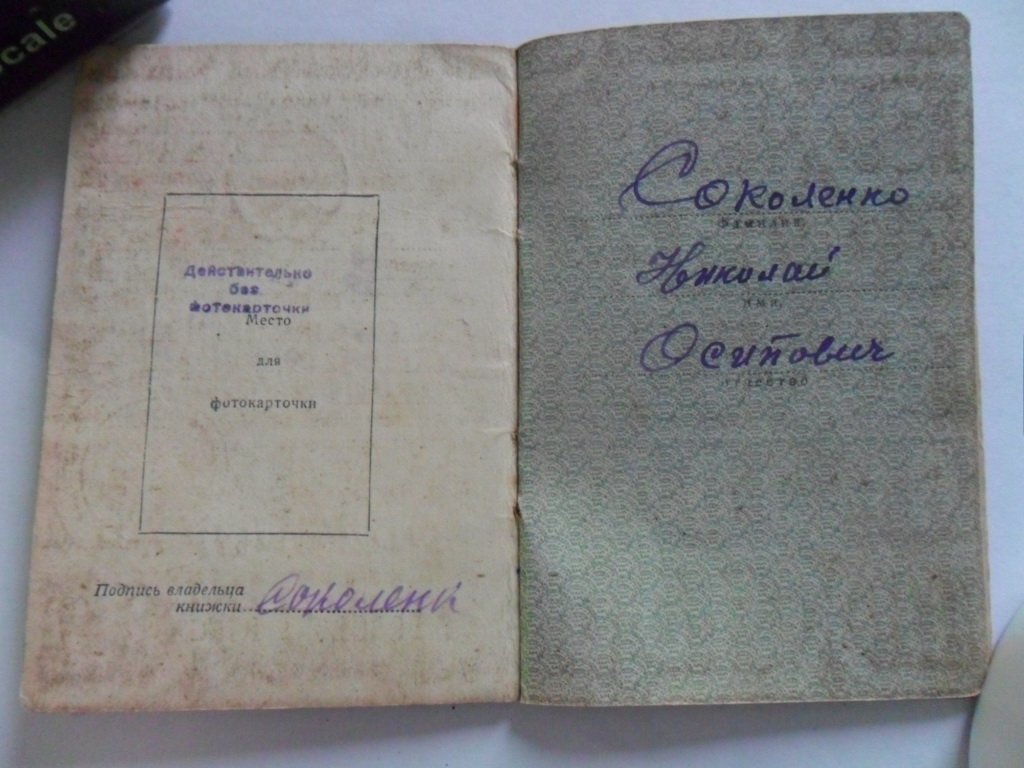 scale
Действительно
без
фотокарточки
Место
для
фотокарточки
Подпись владельца
книжки
Соколенко
Фамилия
Николай
Имя
Осипович
Отчество